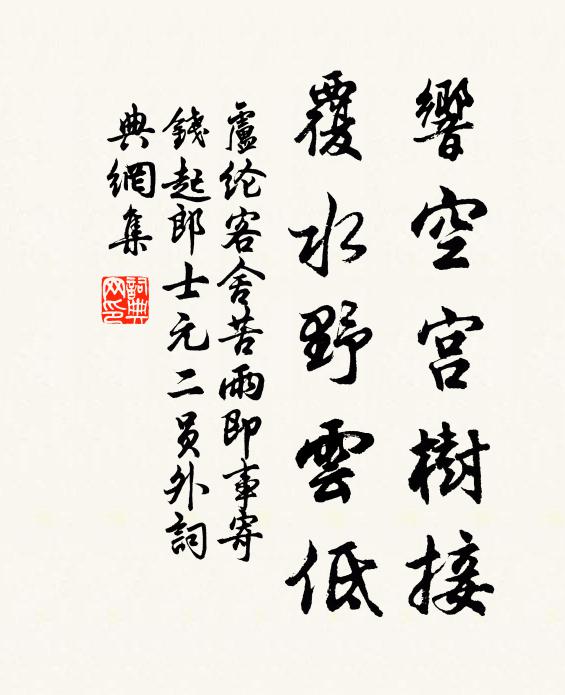 響空宮樹接
覆水野雲低
盧纶客舍苦雨即事寄
錢起郎士元二员外詞
典網集
詞典
网印